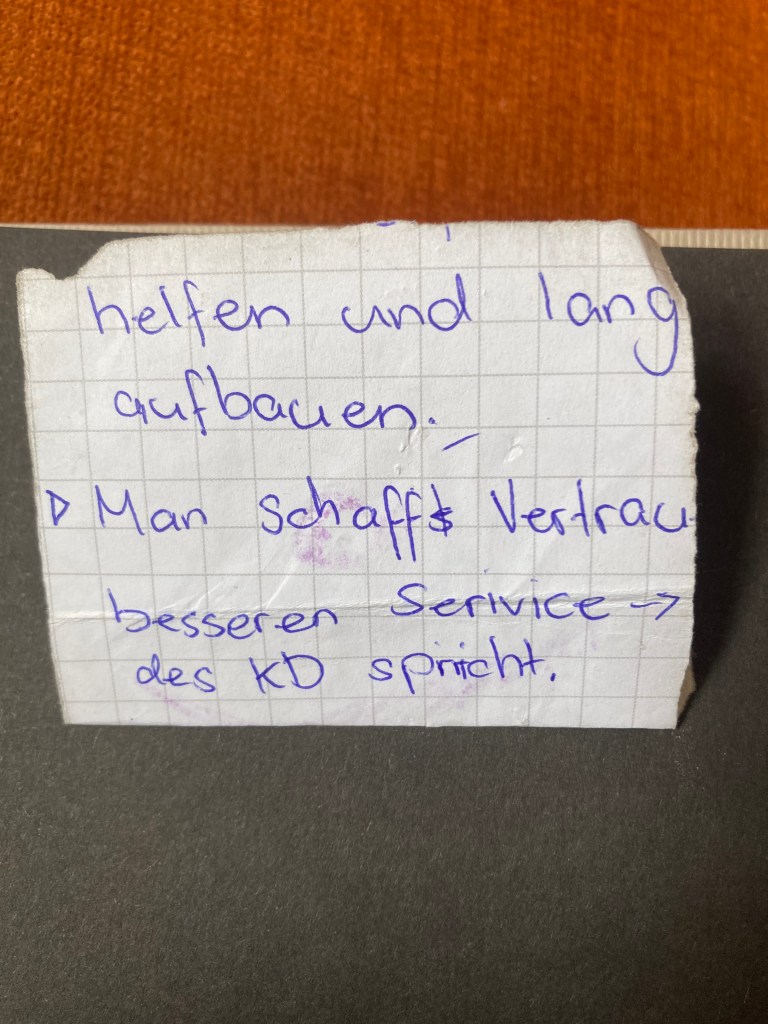 helfen und lang
aufbauen.
▷ Man schafft Vertrau
besseren Serivice →
des KD spricht.